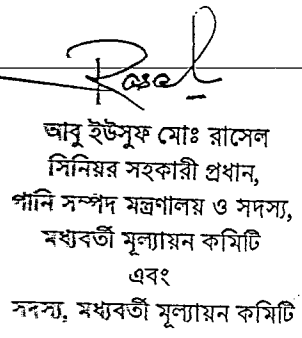 Rasel
আবু ইউসুফ মোঃ রাসেল
সিনিয়র সহকারী প্রধান,
পানি সম্পদ মন্ত্রণালয় ও সদস্য,
মধ্যবর্তী মূল্যায়ন কমিটি
এবং
সদস্য, মধ্যবর্তী মূল্যায়ন কমিটি